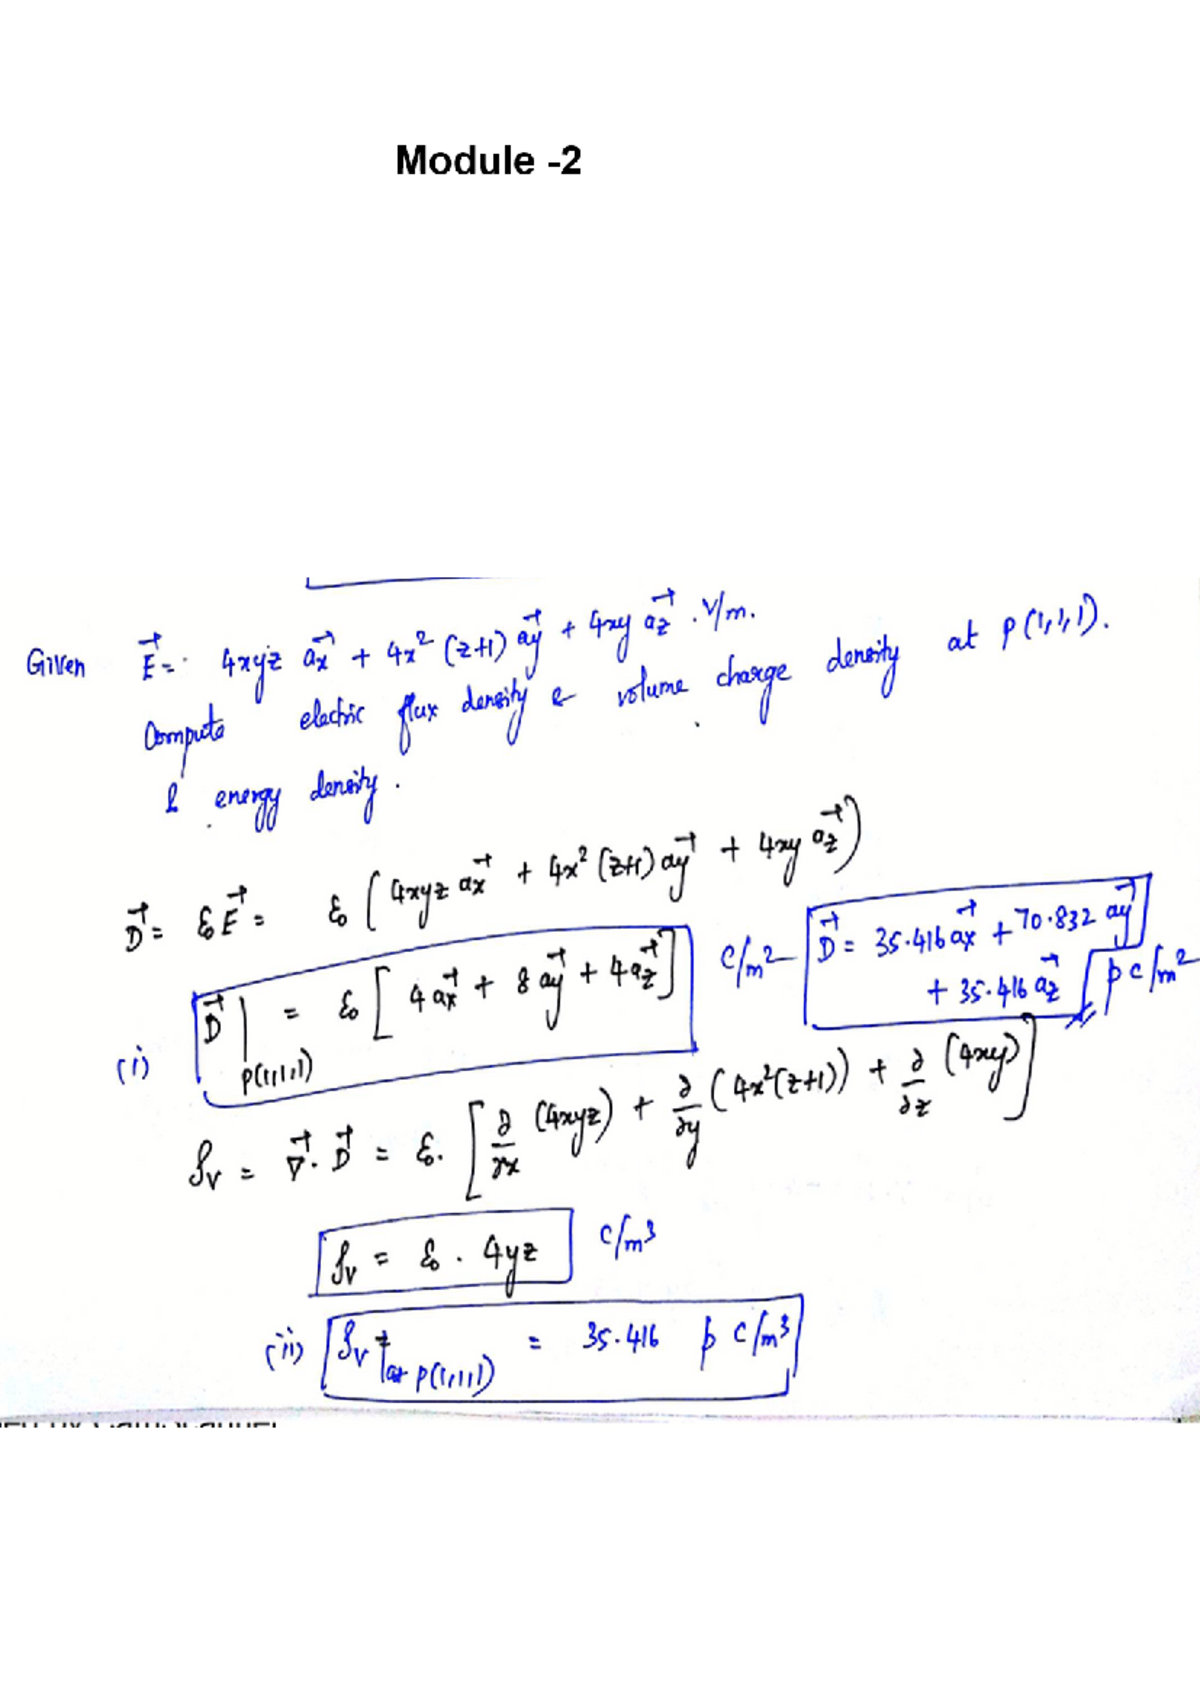 Module -2
Given E⃗ = 4xyz a⃗x + 4x² (z+1) a⃗y + 4xy a⃗z . V/m.
Compute electric flux density & volume charge density at P(1,1,1).
& energy density.
D⃗ = ε₀E⃗ = ε₀ (4xyz a⃗x + 4x² (z+1) a⃗y + 4xy a⃗z)
(i) D⃗ |P(1,1,1) = ε₀ [4 a⃗x + 8 a⃗y + 4 a⃗z] C/m²
D⃗ = 35.416 a⃗x + 70.832 a⃗y
+ 35.416 a⃗z p C/m²
ρv = ∇⃗ . D⃗ = ε₀ [∂/∂x (4xyz) + ∂/∂y (4x²(z+1)) + ∂/∂z (4xy)]
ρv = ε₀ . 4yz C/m³
(ii) ρv |at P(1,1,1) = 35.416 p C/m³